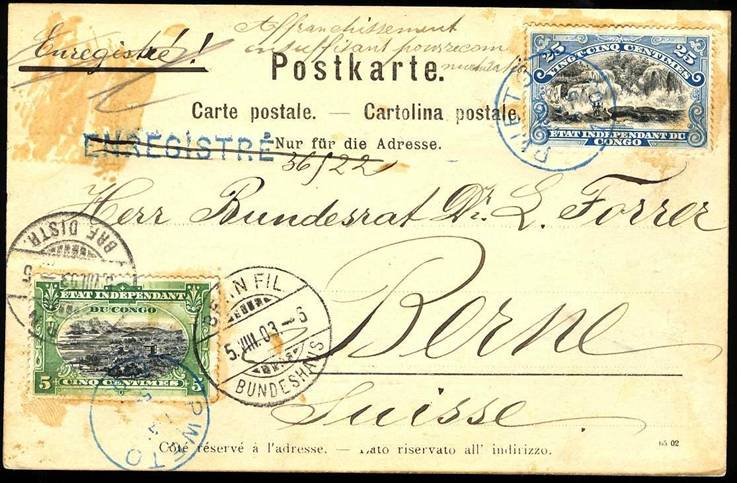 Enregistré!
Affranchissement
insuffisant pour recom
Postkarte.
Carte postale. — Cartolina postale.
ENREGISTRÉ
Nur für die Adresse.
36/22
25 VINGT-CINQ CENTIMES 25
ETAT INDEPENDANT DU
CONGO
PWETO
Herr Bundesrat Dr. L. Forrer
Berne
Suisse.
BRF. DISTR.
ETAT INDEPENDANT
DU CONGO
5 CINQ CENTIMES 5
BERN FIL.
5.VIII.03.–6
BUNDESHAUS
PWETO
Côté réservé à l'adresse. — Lato riservato all' indirizzo.
65 02